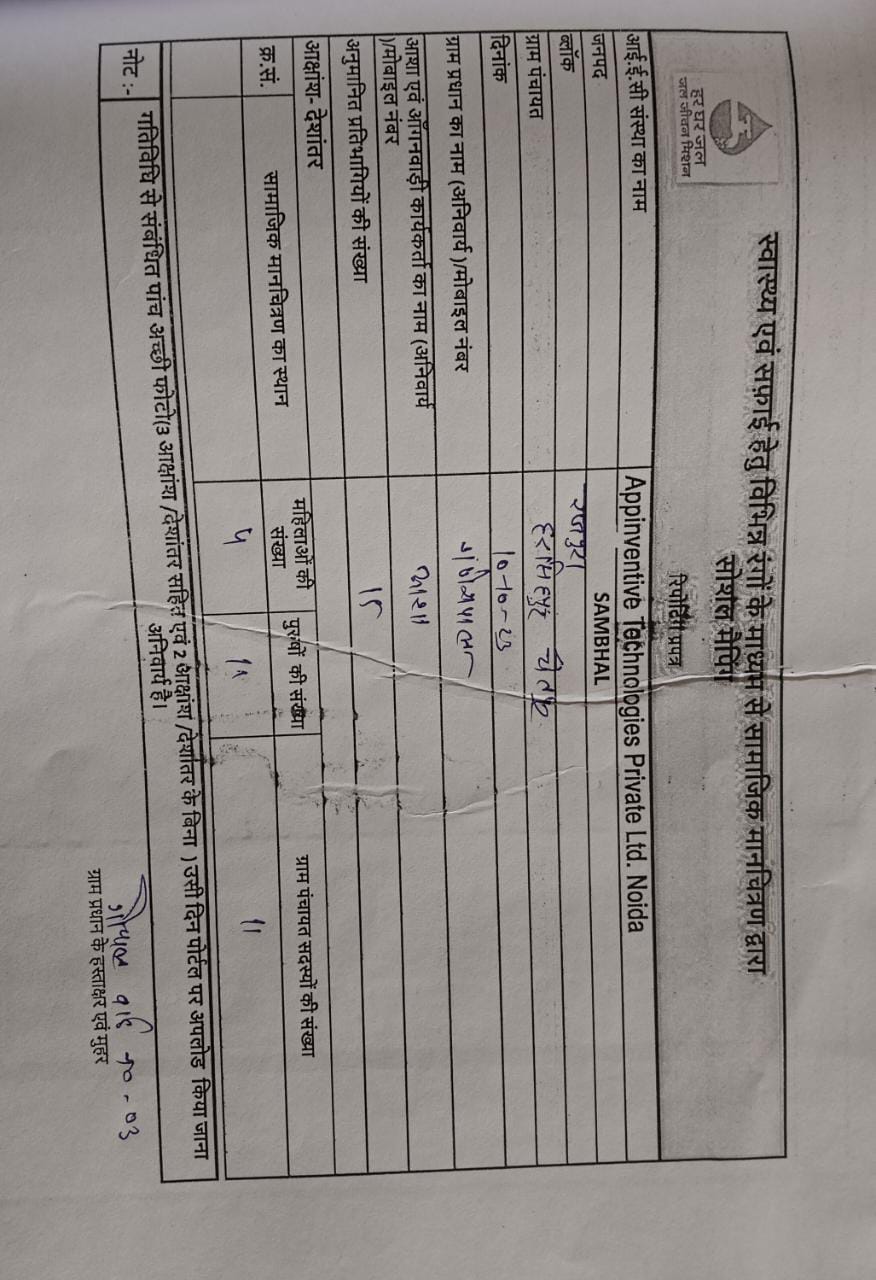 हर घर जल
जल जीवन मिशन
स्वास्थ्य एवं सफ़ाई हेतु विभिन्न रंगों के माध्यम से सामाजिक मानचित्रण द्वारा
सोशल मैपिंग
रिपोर्टिंग प्रपत्र
आई.ई.सी संस्था का नाम Appinventive Technologies Private Ltd. Noida
जनपद SAMBHAL
ब्लॉक रजपुरा
ग्राम पंचायत
दिनांक १०-१०-२३
ग्राम प्रधान का नाम (अनिवार्य )/मोबाइल नंबर
आशा एवं आँगनवाड़ी कार्यकर्ता का नाम (अनिवार्य
)/मोबाइल नंबर
अनुमानित प्रतिभागियों की संख्या
आक्षांश- देशांतर
क्र.सं. सामाजिक मानचित्रण का स्थान महिलाओं की संख्या पुरुषों की संख्या ग्राम पंचायत सदस्यों की संख्या
५ ११
नोट :- गतिविधि से संबंधित पांच अच्छी फोटो(3 आक्षांश /देशांतर सहित एवं 2 आक्षांश /देशांतर के बिना ) उसी दिन पोर्टल पर अपलोड किया जाना
अनिवार्य है।
ग्राम प्रधान के हस्ताक्षर एवं मुहर